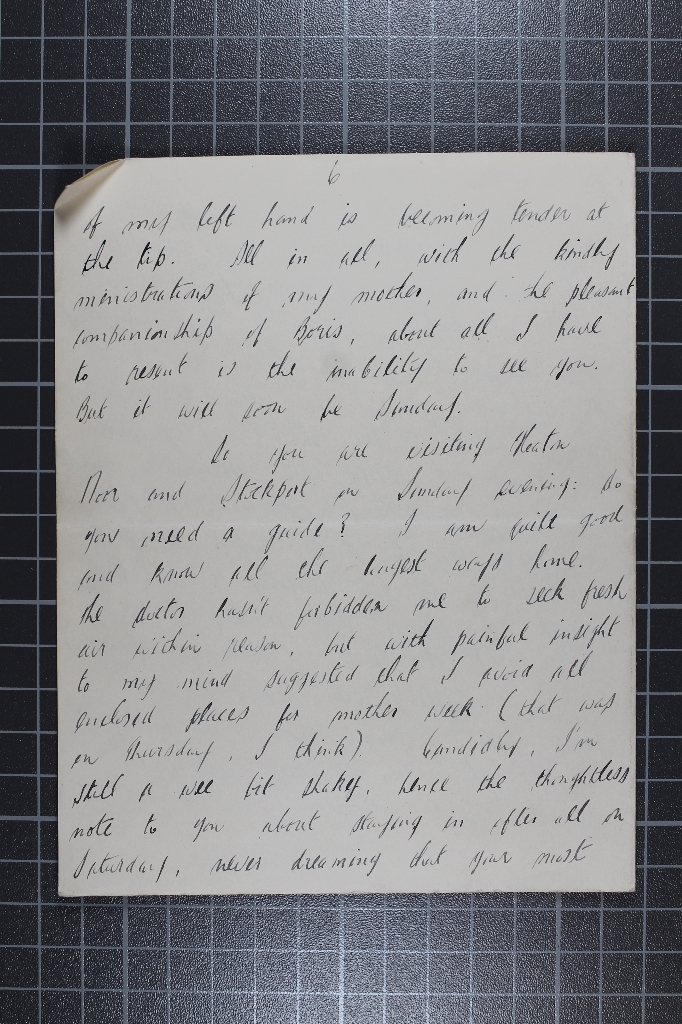 6
of my left hand is becoming tender at
the tip. All in all, with the kindly
ministrations of my mother, and the pleasant
companionship of Boris, about all I have
to resent is the inability to see you.
But it will soon be Sunday.
So you are visiting Heaton
Moor and Stockport on Sunday evening: do
you need a guide? I am quite good
and know all the longest ways home.
The doctor hasn't forbidden me to seek fresh
air within reason, but with painful insight
to my mind suggested that I avoid all
enclosed places for another week (that was
on Thursday, I think). Candidly, I'm
still a wee bit shakey, hence the thoughtless
note to you about staying in after all on
Saturday, never dreaming that your most